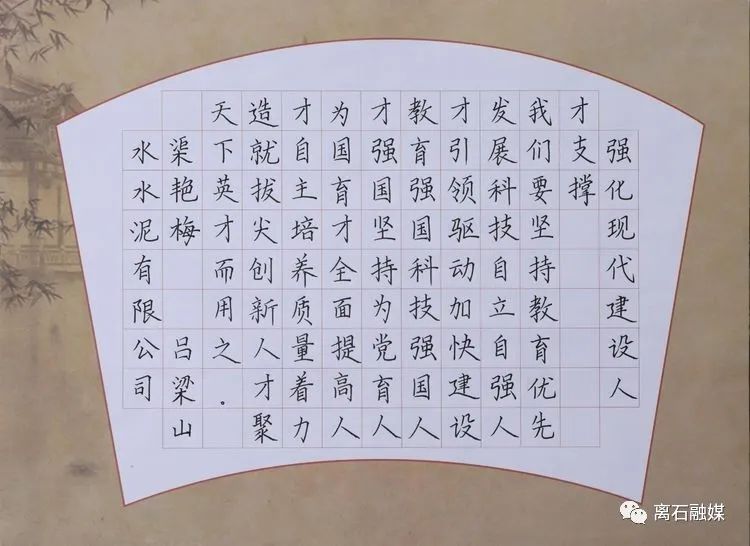 强化现代建设人
才支撑
我们要坚持教育优先
发展科技自立自强人
才引领驱动加快建设
教育强国科技强国人
才强国坚持为党育人
为国育才全面提高人
才自主培养质量着力
造就拔尖创新人才聚
天下英才而用之。
渠艳梅 吕梁山
水水泥有限公司
离石融媒